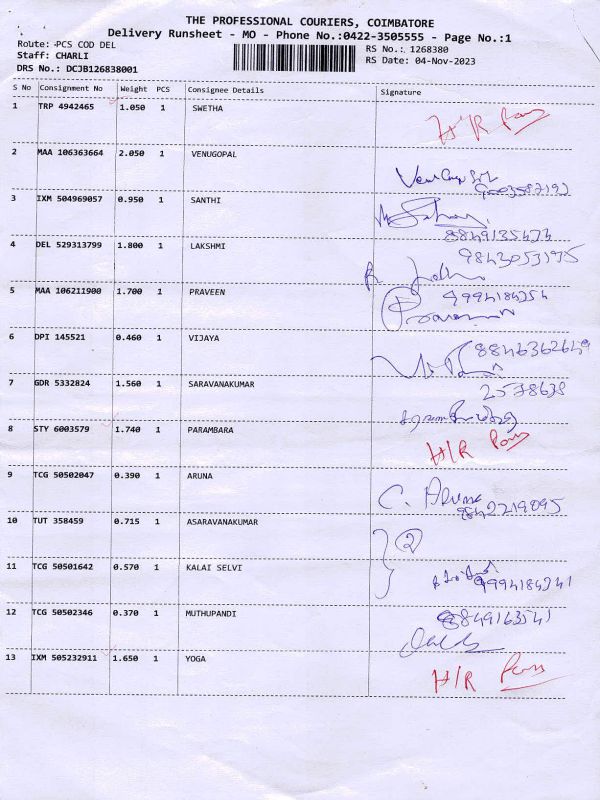 THE PROFESSIONAL COURIERS, COIMBATORE
Delivery Runsheet - MO - Phone No.:0422-3505555 - Page No.:1
Route: PCS COD DEL RS No.: 1268380
Staff: CHARLI RS Date: 04-Nov-2023
DRS No.: DCJB126838001
S No Consignment No Weight PCS Consignee Details Signature
1 TRP 4942465 1.050 1 SWETHA
H/R
2 MAA 106363664 2.050 1 VENUGOPAL
3 IXM 504969057 0.950 1 SANTHI
8849135424
4 DEL 529313799 1.800 1 LAKSHMI
9843053195
5 MAA 106211900 1.700 1 PRAVEEN
9994184254
6 DPI 145521 0.460 1 VIJAYA
7 GDR 5332824 1.560 1 SARAVANAKUMAR
2578638
8 STY 6003579 1.740 1 PARAMBARA
H/R
9 TCG 50502047 0.390 1 ARUNA
C. Aruna
9842219095
10 TUT 358459 0.715 1 ASARAVANAKUMAR
2
11 TCG 50501642 0.570 1 KALAI SELVI
9994184241
12 TCG 50502346 0.370 1 MUTHUPANDI
8849163541
13 IXM 505232911 1.650 1 YOGA
H/R